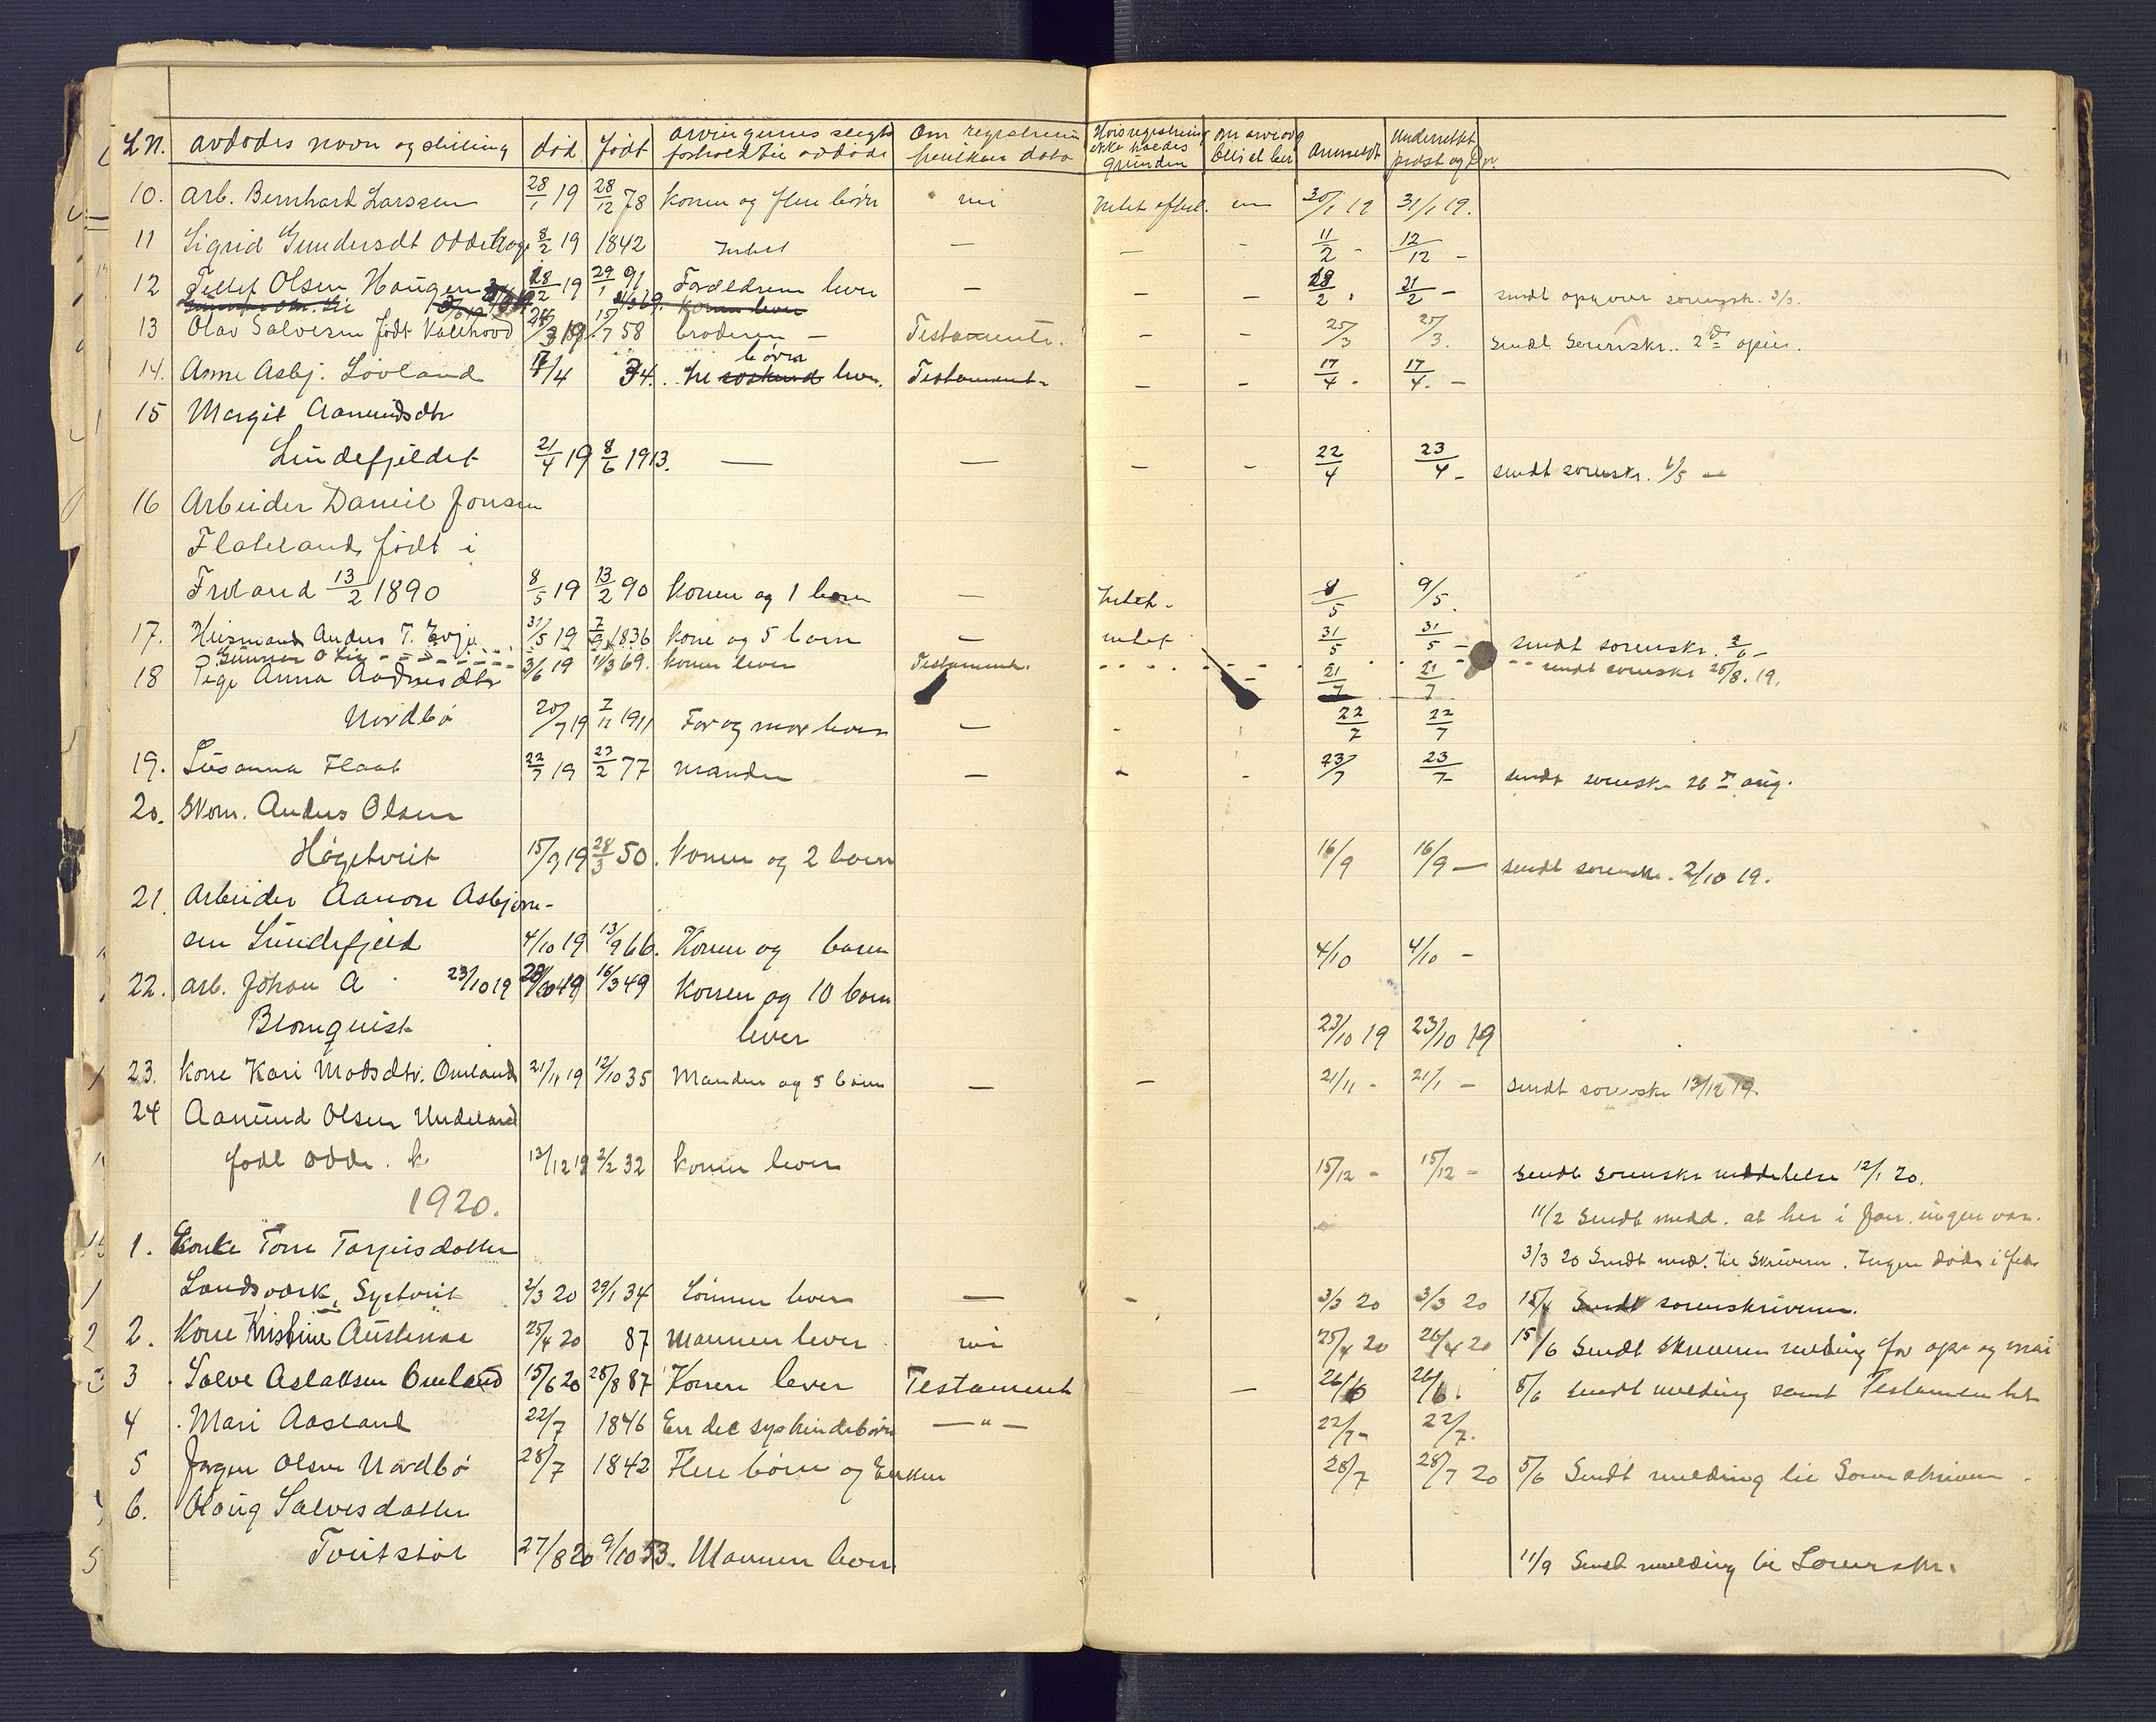 L.N. avdødes navn og stilling død født arvingernes slegts forhold til avdøde Om registrering hvilken dato Hvis registrering ikke holdes grunden Anmeldt Underrettet
10. Arb. Bernhard Larssen 28/1 19 28/12 78 konen og flere børn nei Intet 30/1 19 31/1 19.
11 Sigrid Gundersdt Oddehage 8/2 19 1842 Intet — — - 11/2 - 12/12 -
12 Tellef Olsen Haugen 2 19 29/1 91 Forældrene lever - - - 2 21/2 - sendt sorenskr. 3/3.
13 Olav Salvesen født Valehovd 3 19 15/7 58 broderen — Testamente. - - 25/3 25/3. Sendt Sorenskr.
14. Anne Asbj. Løvland 17/4 34. børn lever. Testament - - 17/4 - 17/4. -
15 Margit Aamundsdtr
Lindefjeldet 21/4 19 8/6 1913. — — - - 22/4 23/4 - sendt sorenskr. 6/5 —
16 Arbeider Daniel Jonsen
Flateland, født i
Froland 13/2 1890 8/5 19 13/2 90 konen og 1 barn — Intet. 8/5 9/5.
17. Husmand Anders T. Evje 31/5 19 1836 kone og 5 barn — intet 31/5 31/5 - sendt sorenskr.
Gunner O 3/6 19 11/3 69. konen lever Testament. sendt sorenskr 25/8. 19.
18 Pige Anna Aadnesdtr 21/7 21/7
Nordbø 20/7 19 7/11 1911 Far og mor lever — - 22/7 22/7
19. Susanna Flaat 22/7 19 23/2 77 manden — - - 23/7 23/7 sendt sorenskr 26 aug.
20. Skom. Anders Olsen
Høgetveit 15/9 19 28/3 50. konen og 2 barn 16/9 16/9 — sendt sorenskr. 2/10 19.
21. Arbeider Aanon Asbjørn-
sen Lindefjeld 4/10 19 13/9 66. Konen og barn 4/10 4/10 -
22. arb. Johan A 23/10 19 16/3 49 Konen og 10 barn
Blomquist lever 23/10 19 23/10 19
23. kone Kari Madsdtr. Omland 21/11 19 12/10 35 Manden og 5 barn — — 21/11 - 21/1 - sendt sorenskr 13/12 19.
24 Aamund Olsen Undeland
født Odde. k 13/12 19 2/2 32 konen lever 15/12 - 15/12 - Sendt Sorenskr meddelelse 12/1 20.
1920. 11/2 Sendt medd. at her i Jan. ingen var.
1. Enke Tone Torjusdatter 3/3 20 Sendt med. til Skriveren. Ingen døde i feb.
Landsværk, Systveit 2/3 20 29/1 34 Sønnen lever — - 3/3 20 3/3 20 15/4 Sendt sorenskriveren.
2. Kone Kristine Austenaa 25/4 20 87 Mannen lever nei 25/4 20 26/4 20 15/6 Sendt Skriveren melding for apr og mai
3 Salve Aslaksen Omland 15/6 20 28/8 87 Konen lever Testament — 26/6 26/6 8/6 sendt melding samt Testamentet
4 Mari Aasland 22/7 1846 En del syskindebørn —"— 22/7- 22/7.
5 Jørgen Olsen Nordbø 28/7 1842 Flere børn og Enken 28/7 28/7 20 5/6 Sendt melding til Sorenskriveren.
6. Olaug Salvesdatter
Tveitstøl 27/8 20 9/10 53. Mannen lever 11/9 Sendt melding til Sorenskr.